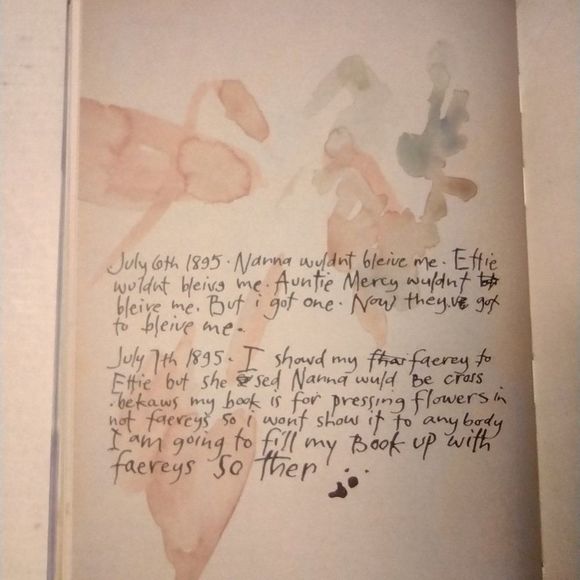 July 6th 1895. Nanna wuldnt bleive me. Effie
wuldnt bleive me. Auntie Mercy wuldnt
bleive me. But i got one. Now theyve got
to bleive me.
July 7th 1895. I showd my faerey to
Effie but she sed Nanna wuld Be cross
bekaws my book is for pressing flowers in
not faereys so i wont show it to anybody
I am going to fill my Book up with
faereys So ther